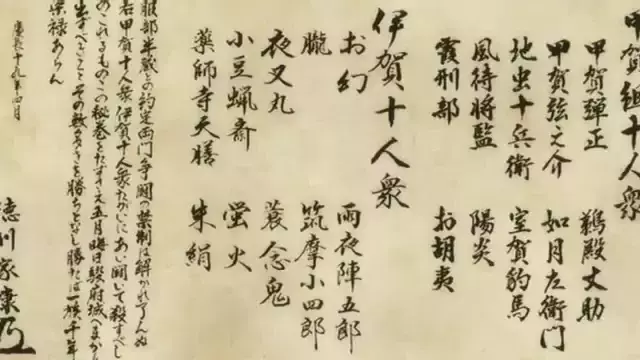 甲賀組十人衆
甲賀彈正 鵜殿丈助
甲賀弦之介 如月左衛門
地虫十兵衛 室賀豹馬
風待将監 陽炎
霞刑部 お胡夷
伊賀十人衆
お幻 雨夜陣五郎
朧 筑摩小四郎
夜叉丸 蓑念鬼
小豆蝋斎 蛍火
薬師寺天膳 朱絹
服部半蔵との約定両門争闘の禁制は解かれてんぬ
右甲賀十人衆伊賀十人衆たがいにあい闘いて殺すべし
のこれるものこの秘巻をたずさえ五月晦日駿府城へまか
出ずべきことその数多きを勝ちとなし勝たば一族千年
栄禄あらん
慶長十九年四月
徳川家康